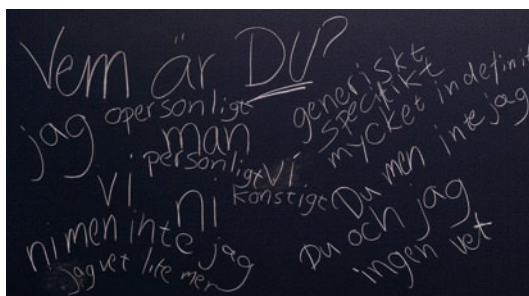 Vem är DU?
jag
opersonligt
man
personligt
vi
ni
vi
konstigt
ni men inte jag
jag vet lite mer
generiskt
specifikt
mycket indefinit
Du men inte jag
Du och jag
ingen vet